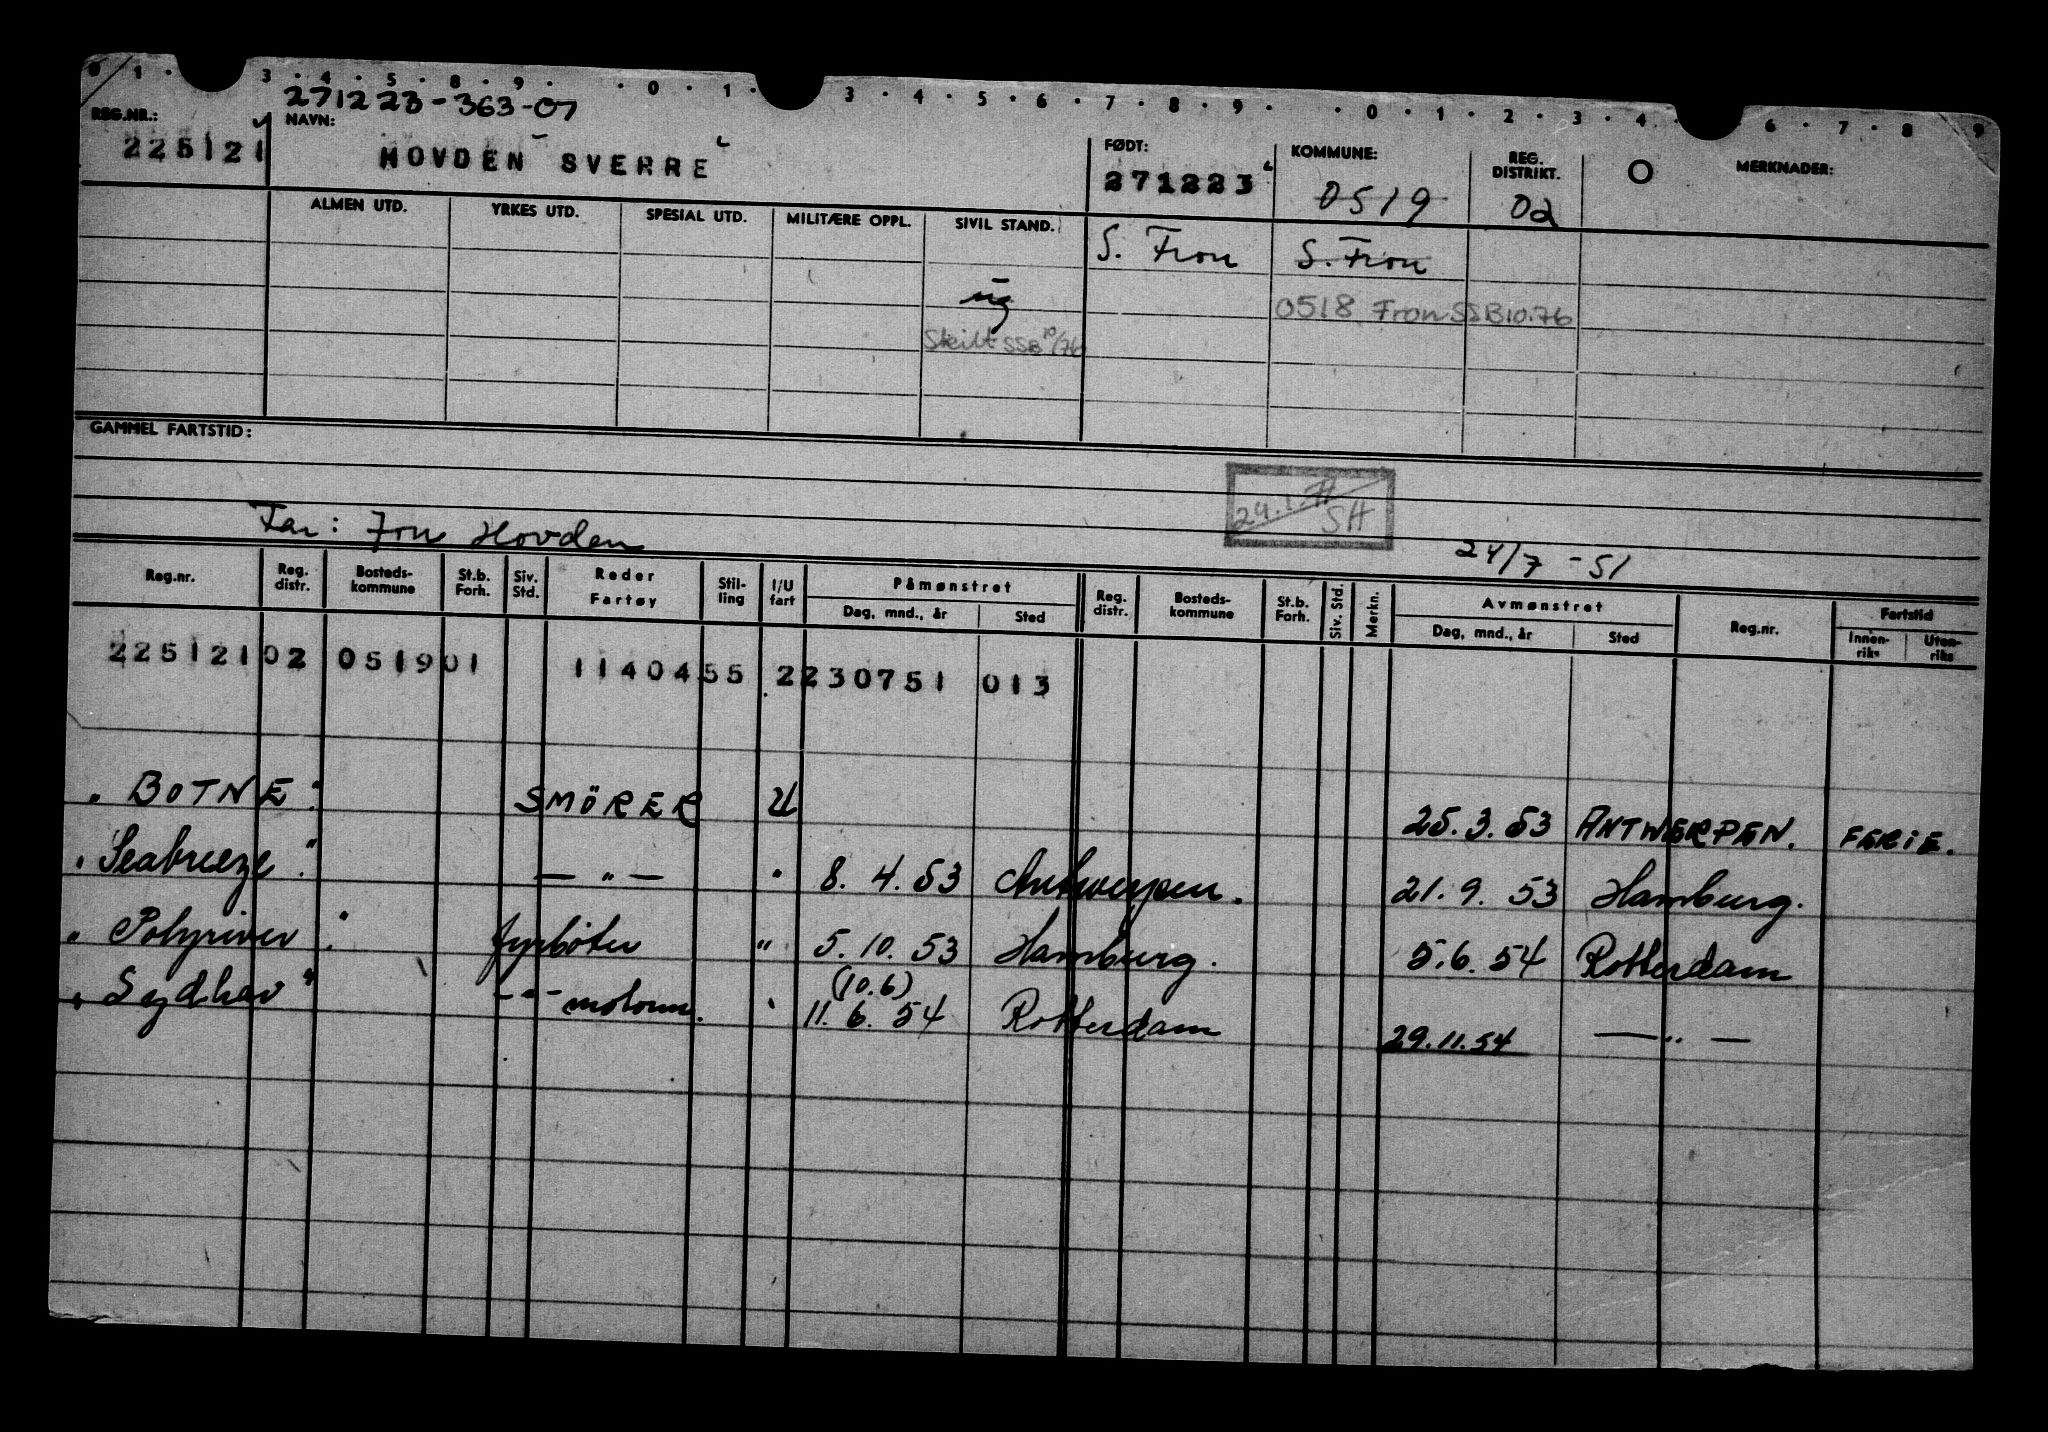 0 1 · 3 · 4 · 5 · 8 · 9 · · 0 · 1 · 3 · 4 · 5 · 6 · 7 · 8 · 9 · · 0 · 1 · 2 · 3 · 4 · 6 · 7 · 8 9
271223-363-07
REG.NR.: NAVN: FØDT: KOMMUNE: REG. DISTRIKT. O MERKNADER:
225121 HOVDEN SVERRE 271223 0519 02
ALMEN UTD. YRKES UTD. SPESIAL UTD. MILITÆRE OPPL. SIVIL STAND.
S. Fron S. Fron
ug 0518 Fron SSB 10.76
Skilt SSB 10/76
GAMMEL FARTSTID:
SH
Far: Jon Hovden
24/7 - 51
Reg.nr. Reg. distr. Bosteds- kommune St.b. Forh. Siv. Std. Reder Fartøy Stil- ling I/U fart Påmønstret Dag, mnd., år Sted Reg. distr. Bosteds- kommune St.b. Forh. Siv. Std. Merkn. Avmønstret Dag, mnd., år Sted Reg.nr. Fartstid Innen- riks Uten- riks
225121 02 0519 01 1140455 2 230751 013
"BOTNE" SMÖRER U 25.3.53 ANTWERPEN. FERIE.
"Seabreeze" — " — " 8. 4. 53 Antwerpen. 21. 9. 53 Hamburg.
"Polyriver" fyrböter " 5. 10. 53 Hamburg. 5.6. 54 Rotterdam
(10.6)
"Sydhav" - " - motorm. " 11. 6. 54 Rotterdam 29.11.54 — " —